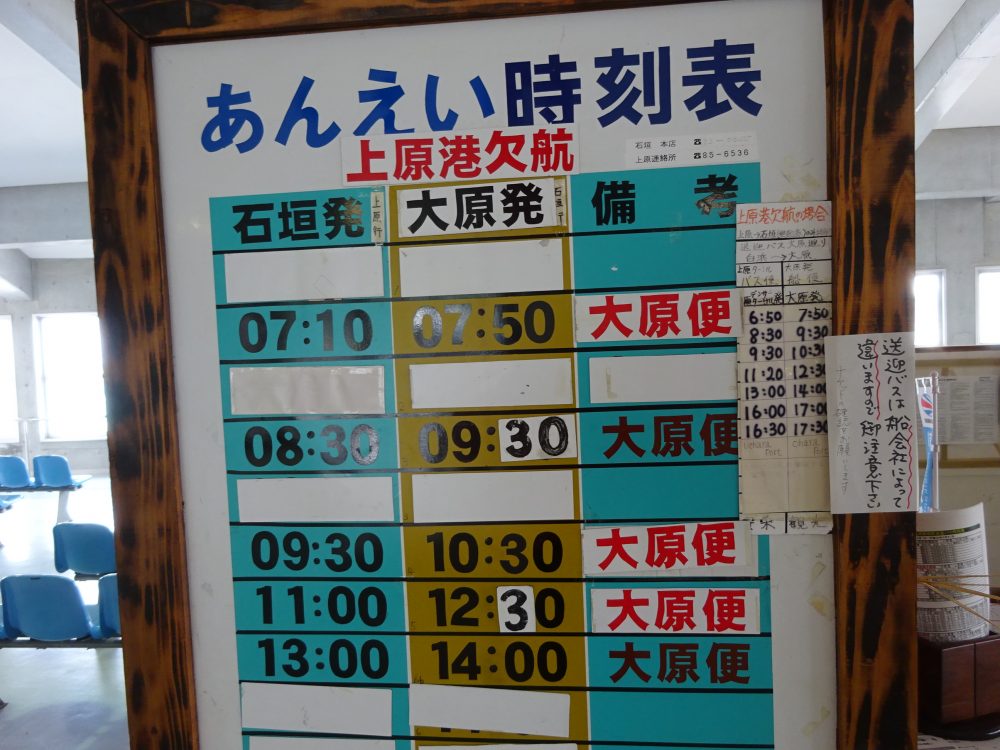 あんえい時刻表
上原港欠航
石垣 本店
上原連絡所 ☎85-6536
石垣発 上原行 大原発 石垣行 備考
07:10 07:50 大原便
08:30 09:30 大原便
09:30 10:30 大原便
11:00 12:30 大原便
13:00 14:00 大原便
上原港欠航の場合
送迎バス大原廻り
白浜→大原
バス便 船便
大原発
6:50 7:50
8:30 9:30
9:30 10:30
11:20 12:30
13:00 14:00
16:00 17:00
16:30 17:30
Uehara Port Ohara Port
送迎バスは船会社によって
違いますので御注意下さい